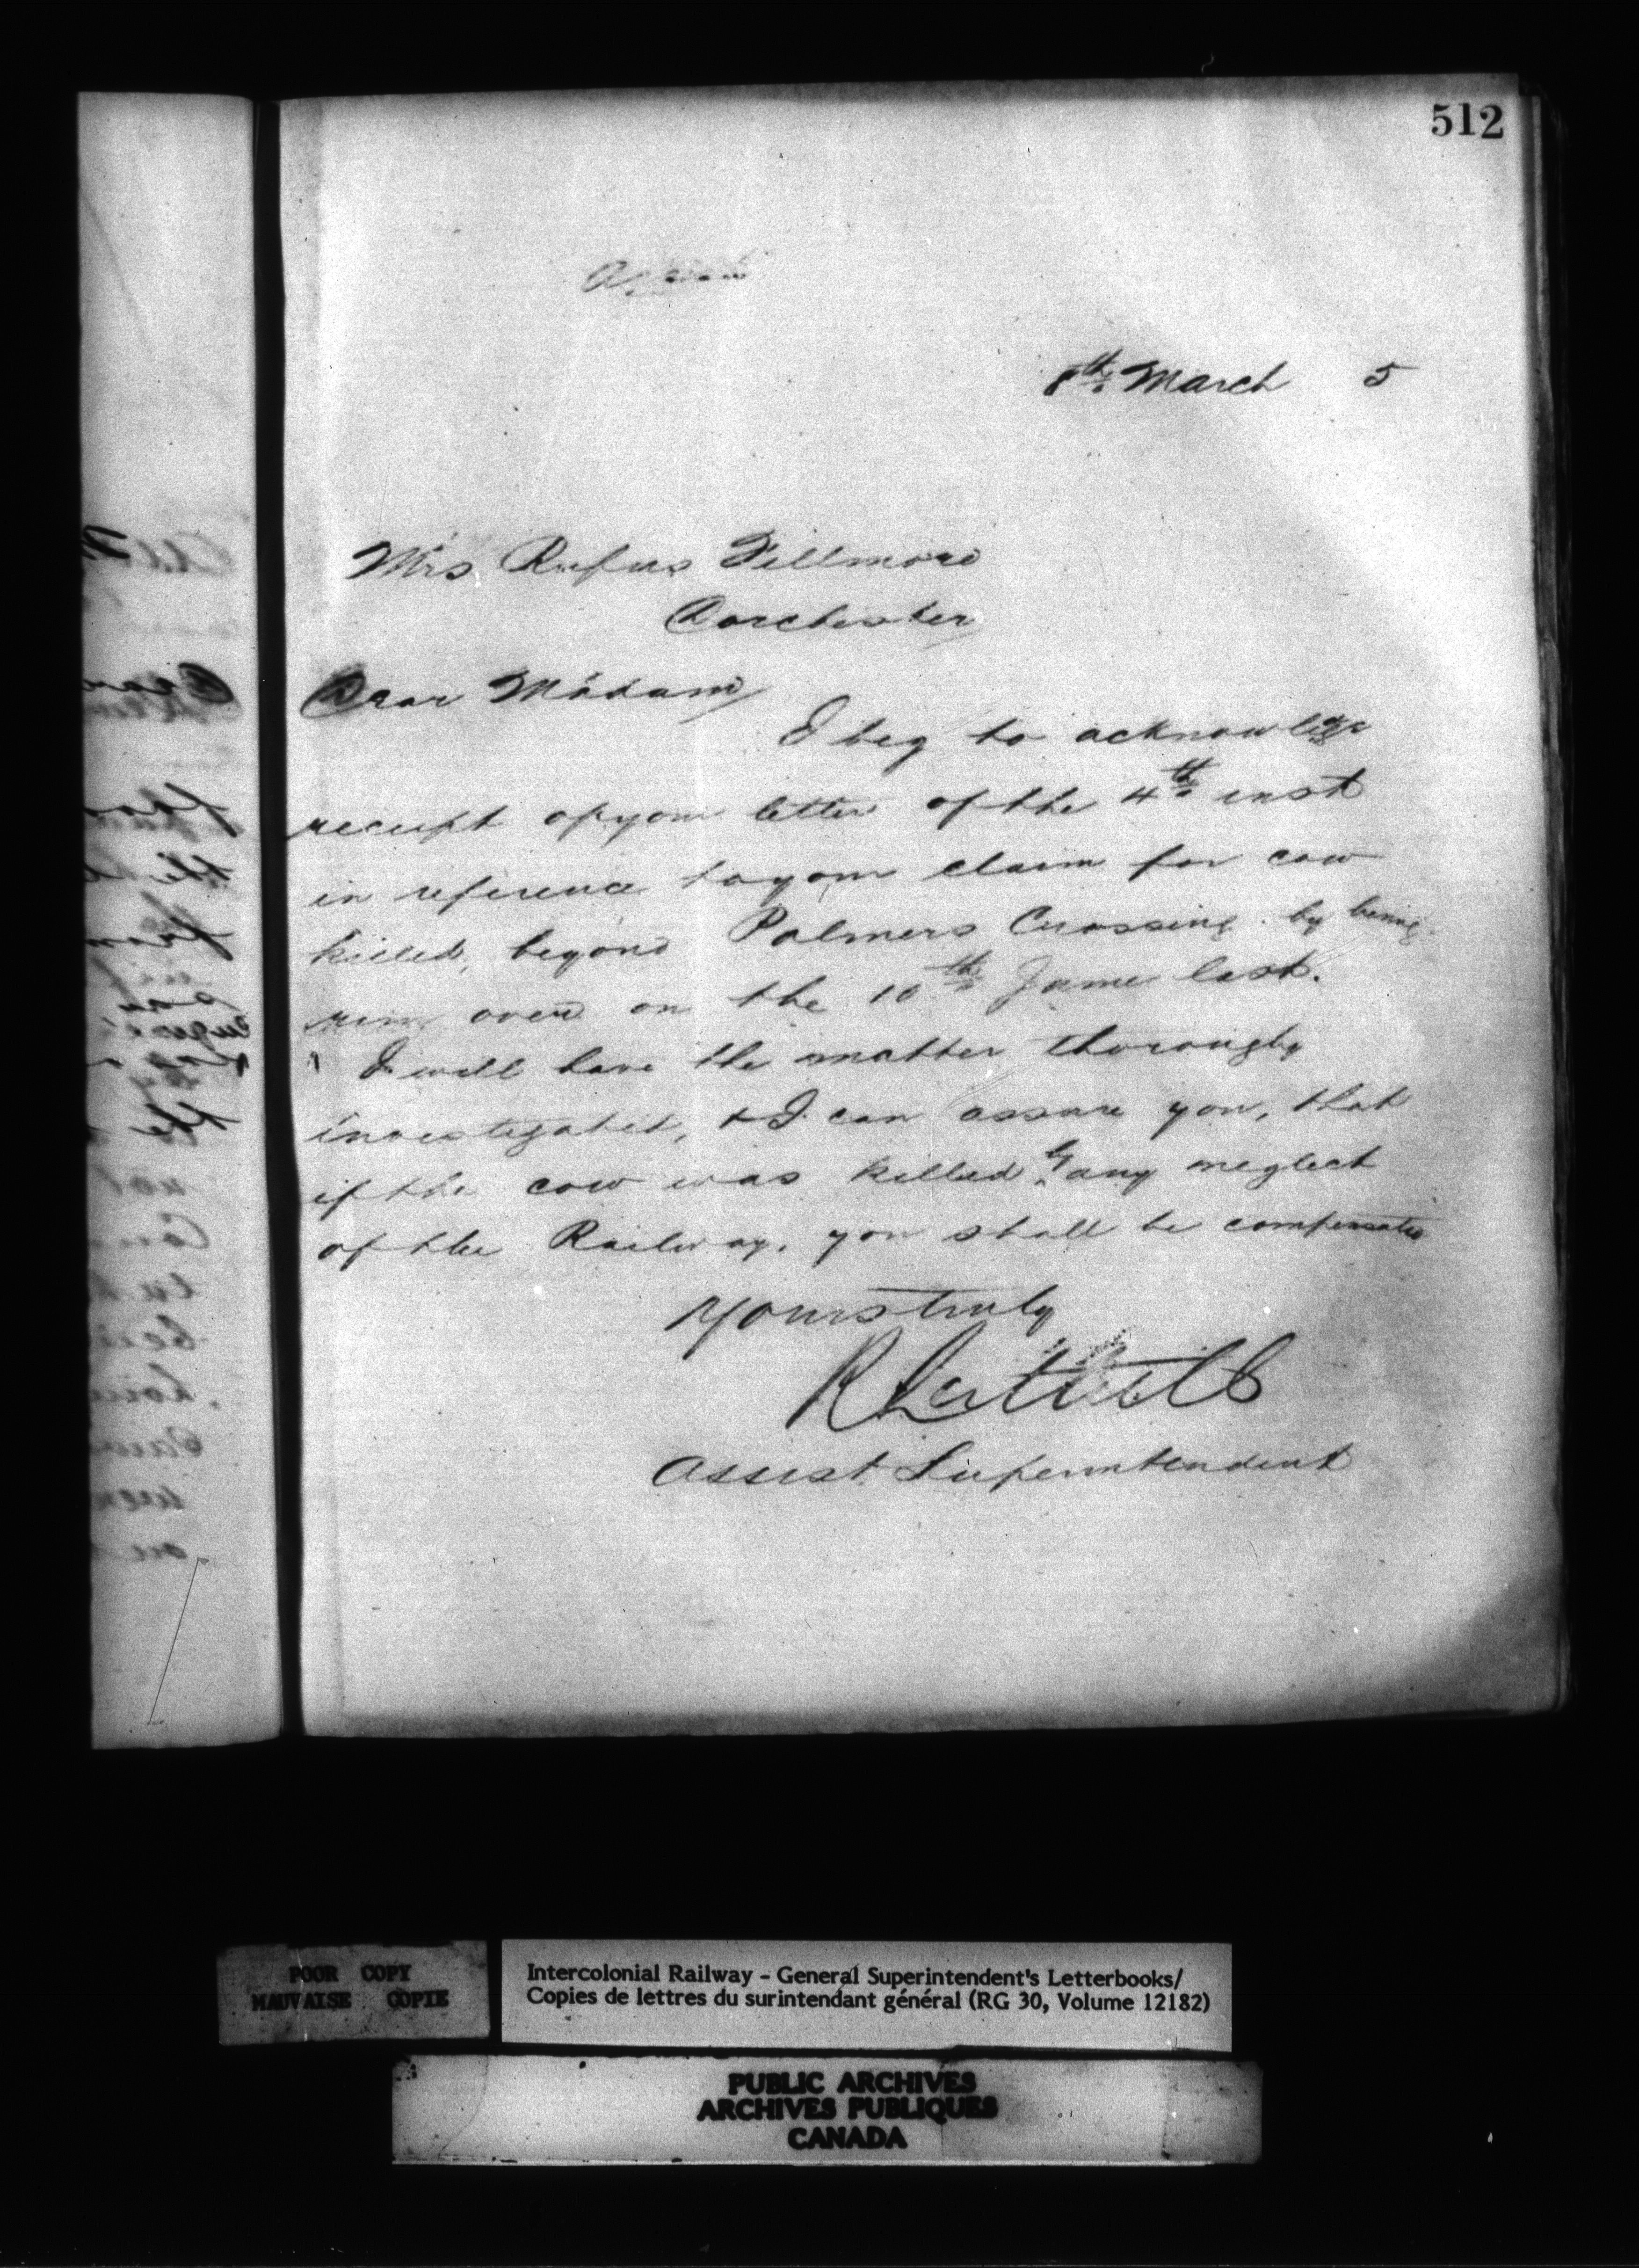 512
8th March 5
Mrs Rufus Fillmore
Dorchester
Dear Madam
I beg to acknowledge
receipt of your letter of the 4th inst
in reference to your claim for cow
killed, beyond Palmers Crossing by being
run over on the 10th June last.
I will have the matter thorougly
investigated, & I can assure you, that
if the cow was killed by any neglect
of the Railway, you shall be compensated
Yours truly
Assist Superintendent
POOR COPY
MAUVAISE COPIE
Intercolonial Railway - General Superintendent's Letterbooks/
Copies de lettres du surintendant général (RG 30, Volume 12182)
PUBLIC ARCHIVES
ARCHIVES PUBLIQUES
CANADA